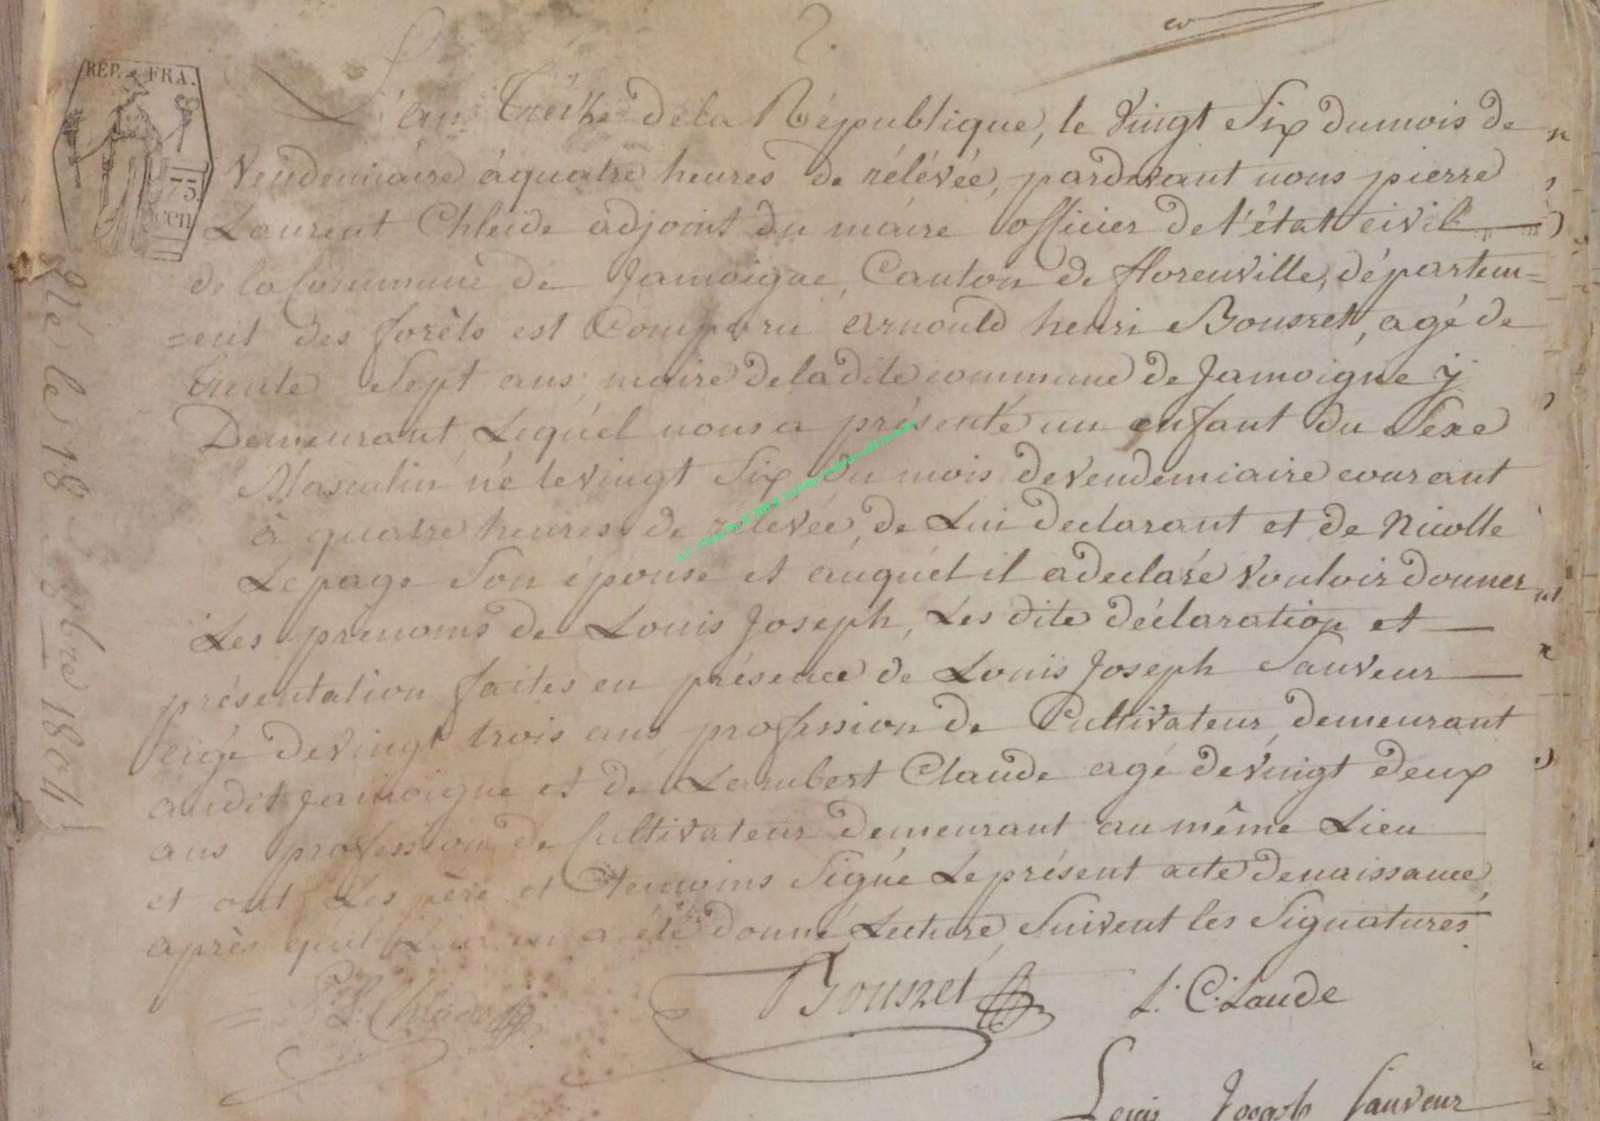 REP. FRA.
75.
cen
L'an Treize de la République, le Vingt Six du mois de
Vendemiaire à quatre heures de rélévée, pardevant nous pierre
Laurent Chleide adjoint du maire officier de l'état civil
de la Commune de Jamoigne, Canton de florenville, départem=
=ent des forêts est Comparu arnould henri Bousret, agé de
trente Sept ans, maire de la dite commune de Jamoigne y
Demeurant, Lequél nous a présenté un enfant du Sexe
Masculin né le vingt Six du mois de vendemiaire courant
à quatre heures de rélévée, de Lui declarant et de Nicolle
Lepage Son épouse et auquél il a declaré vouloir donner
Les prenoms de Louis Joseph, Les dite déclaration et
présentation faites en présence de Louis Joseph Sauveur
agé de vingt trois ans profession de Cultivateur, demeurant
audit Jamoigne et de Lambert Claude agé de vingt deux
ans profession de Cultivateur demeurant au même Lieu
et ont Les père et témoins Signé Le présent acte de naissance,
après quil Leur en a été donné Lecture, Suivent les Signatures.
P. L. Chleide Bousret L. Claude
Louis Joseph Sauveur
Né le 18 8bre 1804